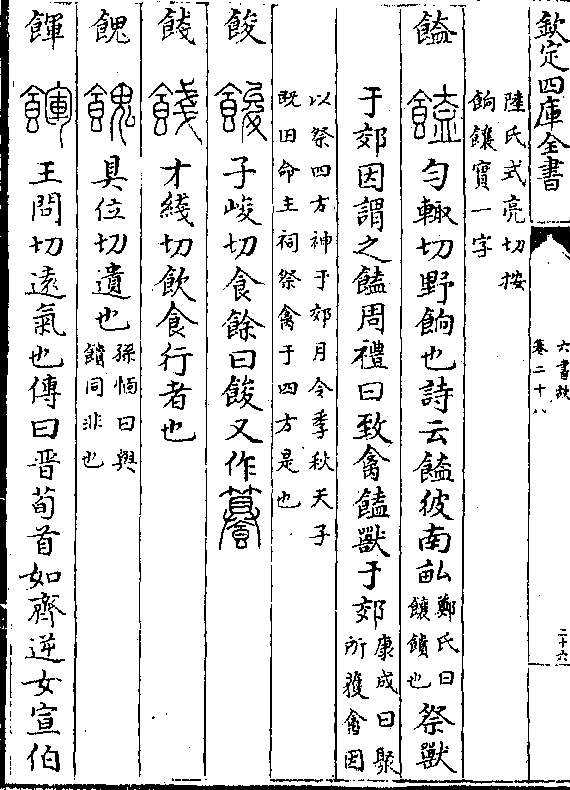 欽定四庫全書
六書故
卷二十八
二十六
陸氏式亮切按
餉饟實一字
饁 勻輒切野餉也詩云饁彼南畝鄭氏曰饟饋也祭獸
于郊因謂之饁周禮曰致禽饁獸于郊康成曰聚所獲禽因
以祭四方神于郊月令季秋天子
既田命主祠祭禽于四方是也
餕 子峻切食餘曰餕又作𩜽
餞 才綫切飲食行者也
餽 具位切遺也孫愐曰與饋同非也
餫 王問切遠氣也傳曰晋荀首如齊逆女宣伯